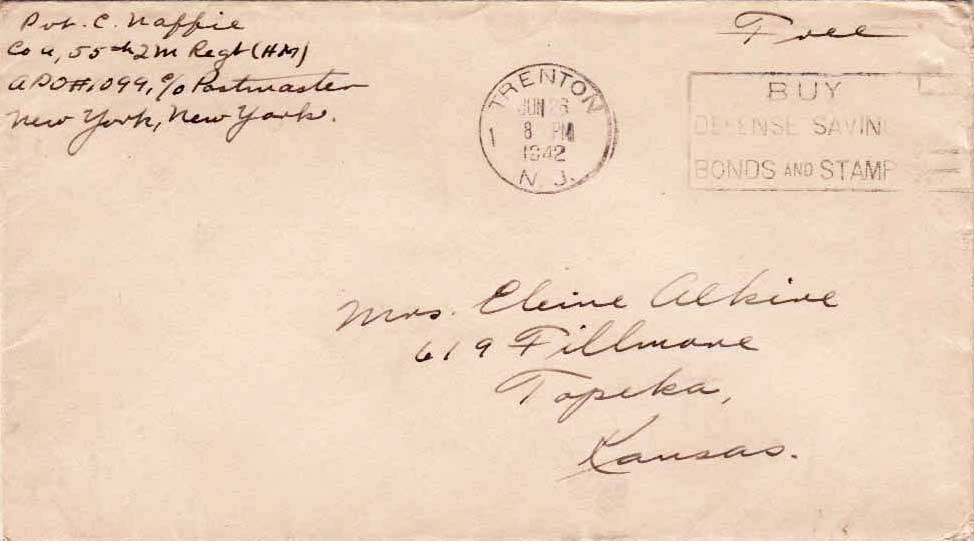 Pvt. C. Naffie
Co U, 55th QM Regt (HM)
APO #1099, c/o Postmaster
New York, New York.
Free
TRENTON
JUN 26
8 PM
1942
N. J.
1
BUY
DEFENSE SAVIN
BONDS AND STAMP
Mrs. Eleine Alkire
619 Fillmore
Topeka,
Kansas.